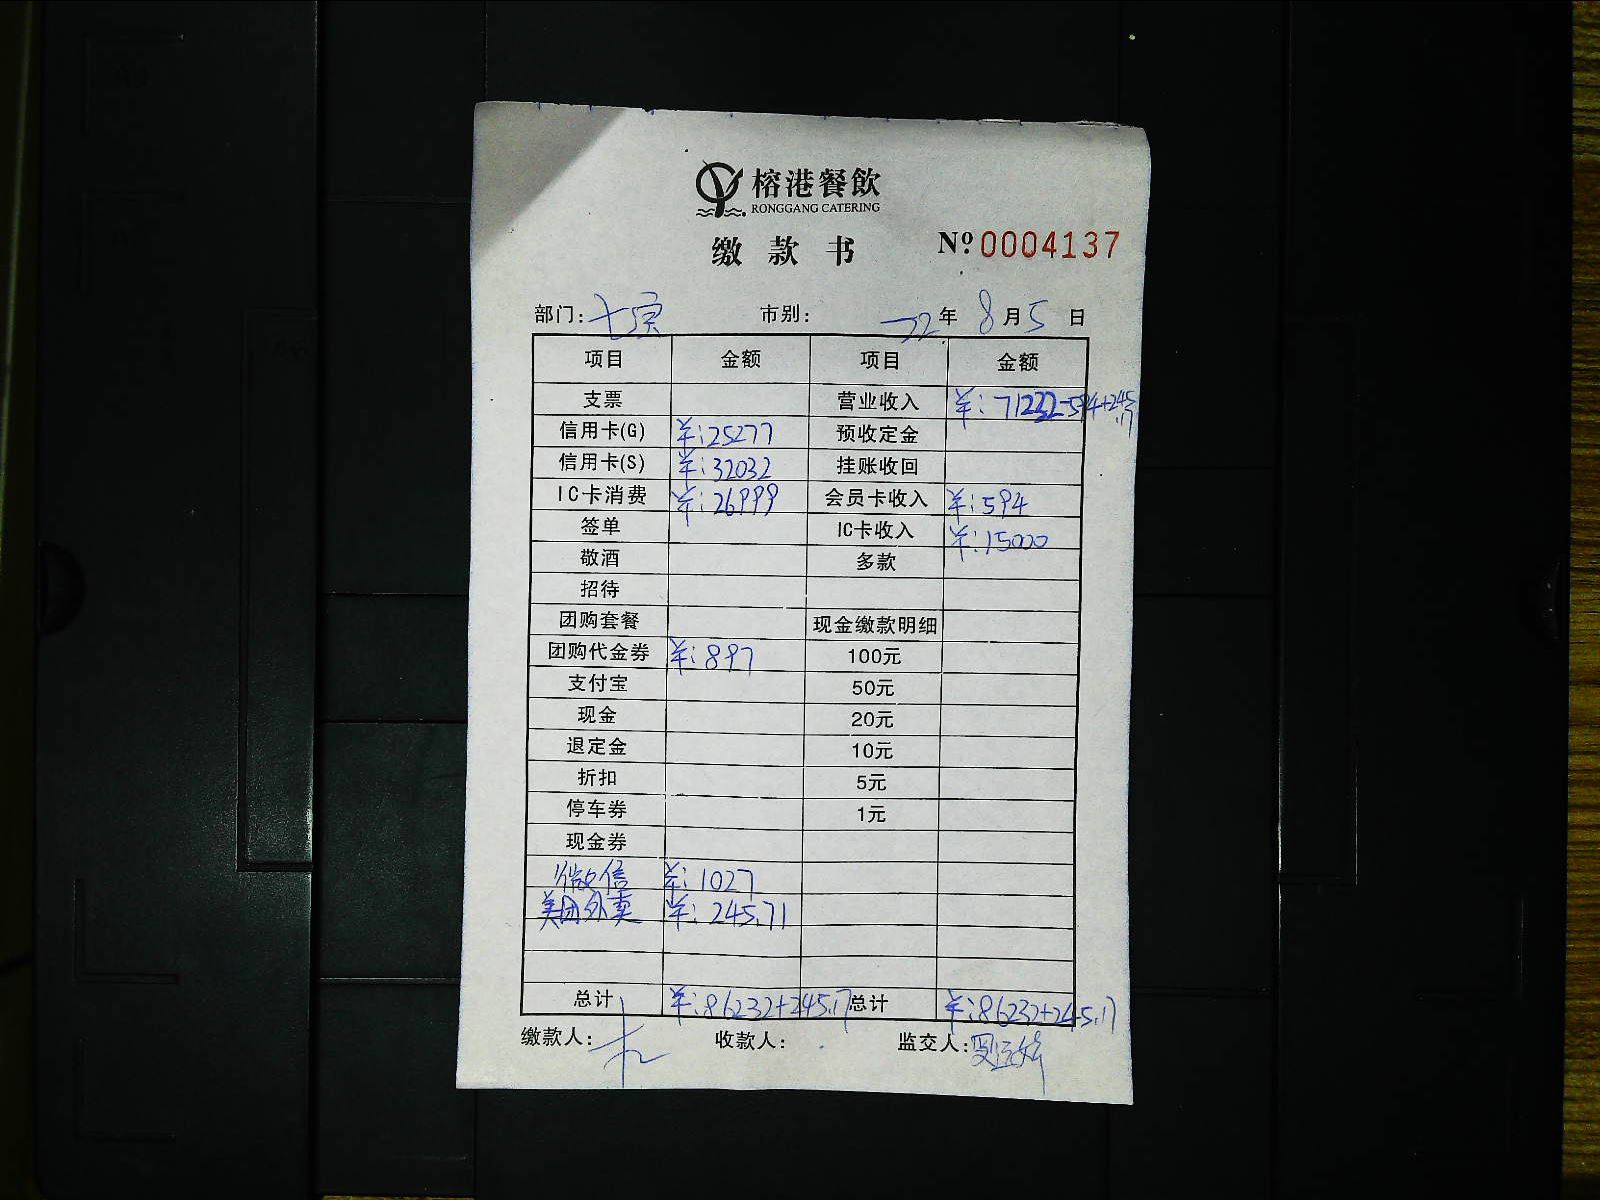 榕港餐飲
RONGGANG CATERING
缴款书 Nº.0004137
部门: 七宝 市别: 22年 8月5日
项目 金额 项目 金额
支票 营业收入 羊:71232-594+245.17
信用卡(G) 羊:25277 预收定金
信用卡(S) 羊:32032 挂账收回
IC卡消费 羊:26999 会员卡收入 羊:594
签单 IC卡收入 羊:15000
敬酒 多款
招待
团购套餐 现金缴款明细
团购代金券 羊:897 100元
支付宝 50元
现金 20元
退定金 10元
折扣 5元
停车券 1元
现金券
微信 羊:1027
美团外卖 羊:245.71
总计 羊:86232+245.17 总计 羊:86232+245.17
缴款人: 收款人: 监交人: